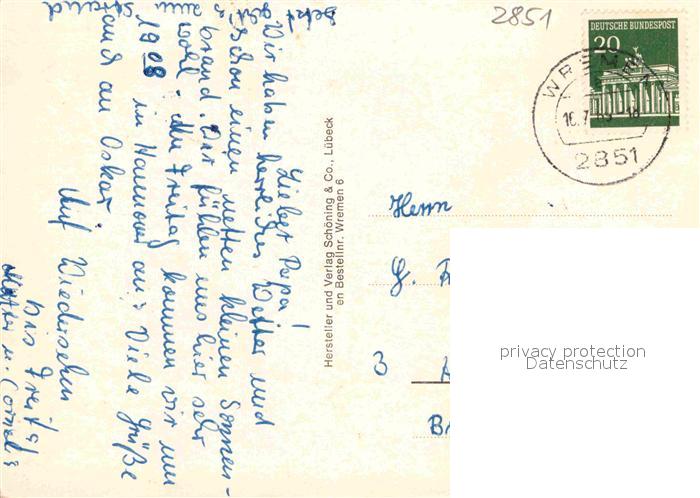 Lieber Papa!
Wir haben herrliches Wetter und
schon einen netten kleinen Sonnen-
brand. Wir fühlen uns hier sehr
wohl. Am Freitag kommen wir um
19 08 in Hannover an. Viele Grüße
auch an Oskar
Auf Wiedersehn
bis Freitag
Mutter u.
Hersteller und Verlag Schöning & Co., Lübeck
en Bestellnr. Wremen 6
2851
DEUTSCHE BUNDESPOST
20
WREMEN
16.7.
2851
Herrn
G.
3
privacy protection
Datenschutz